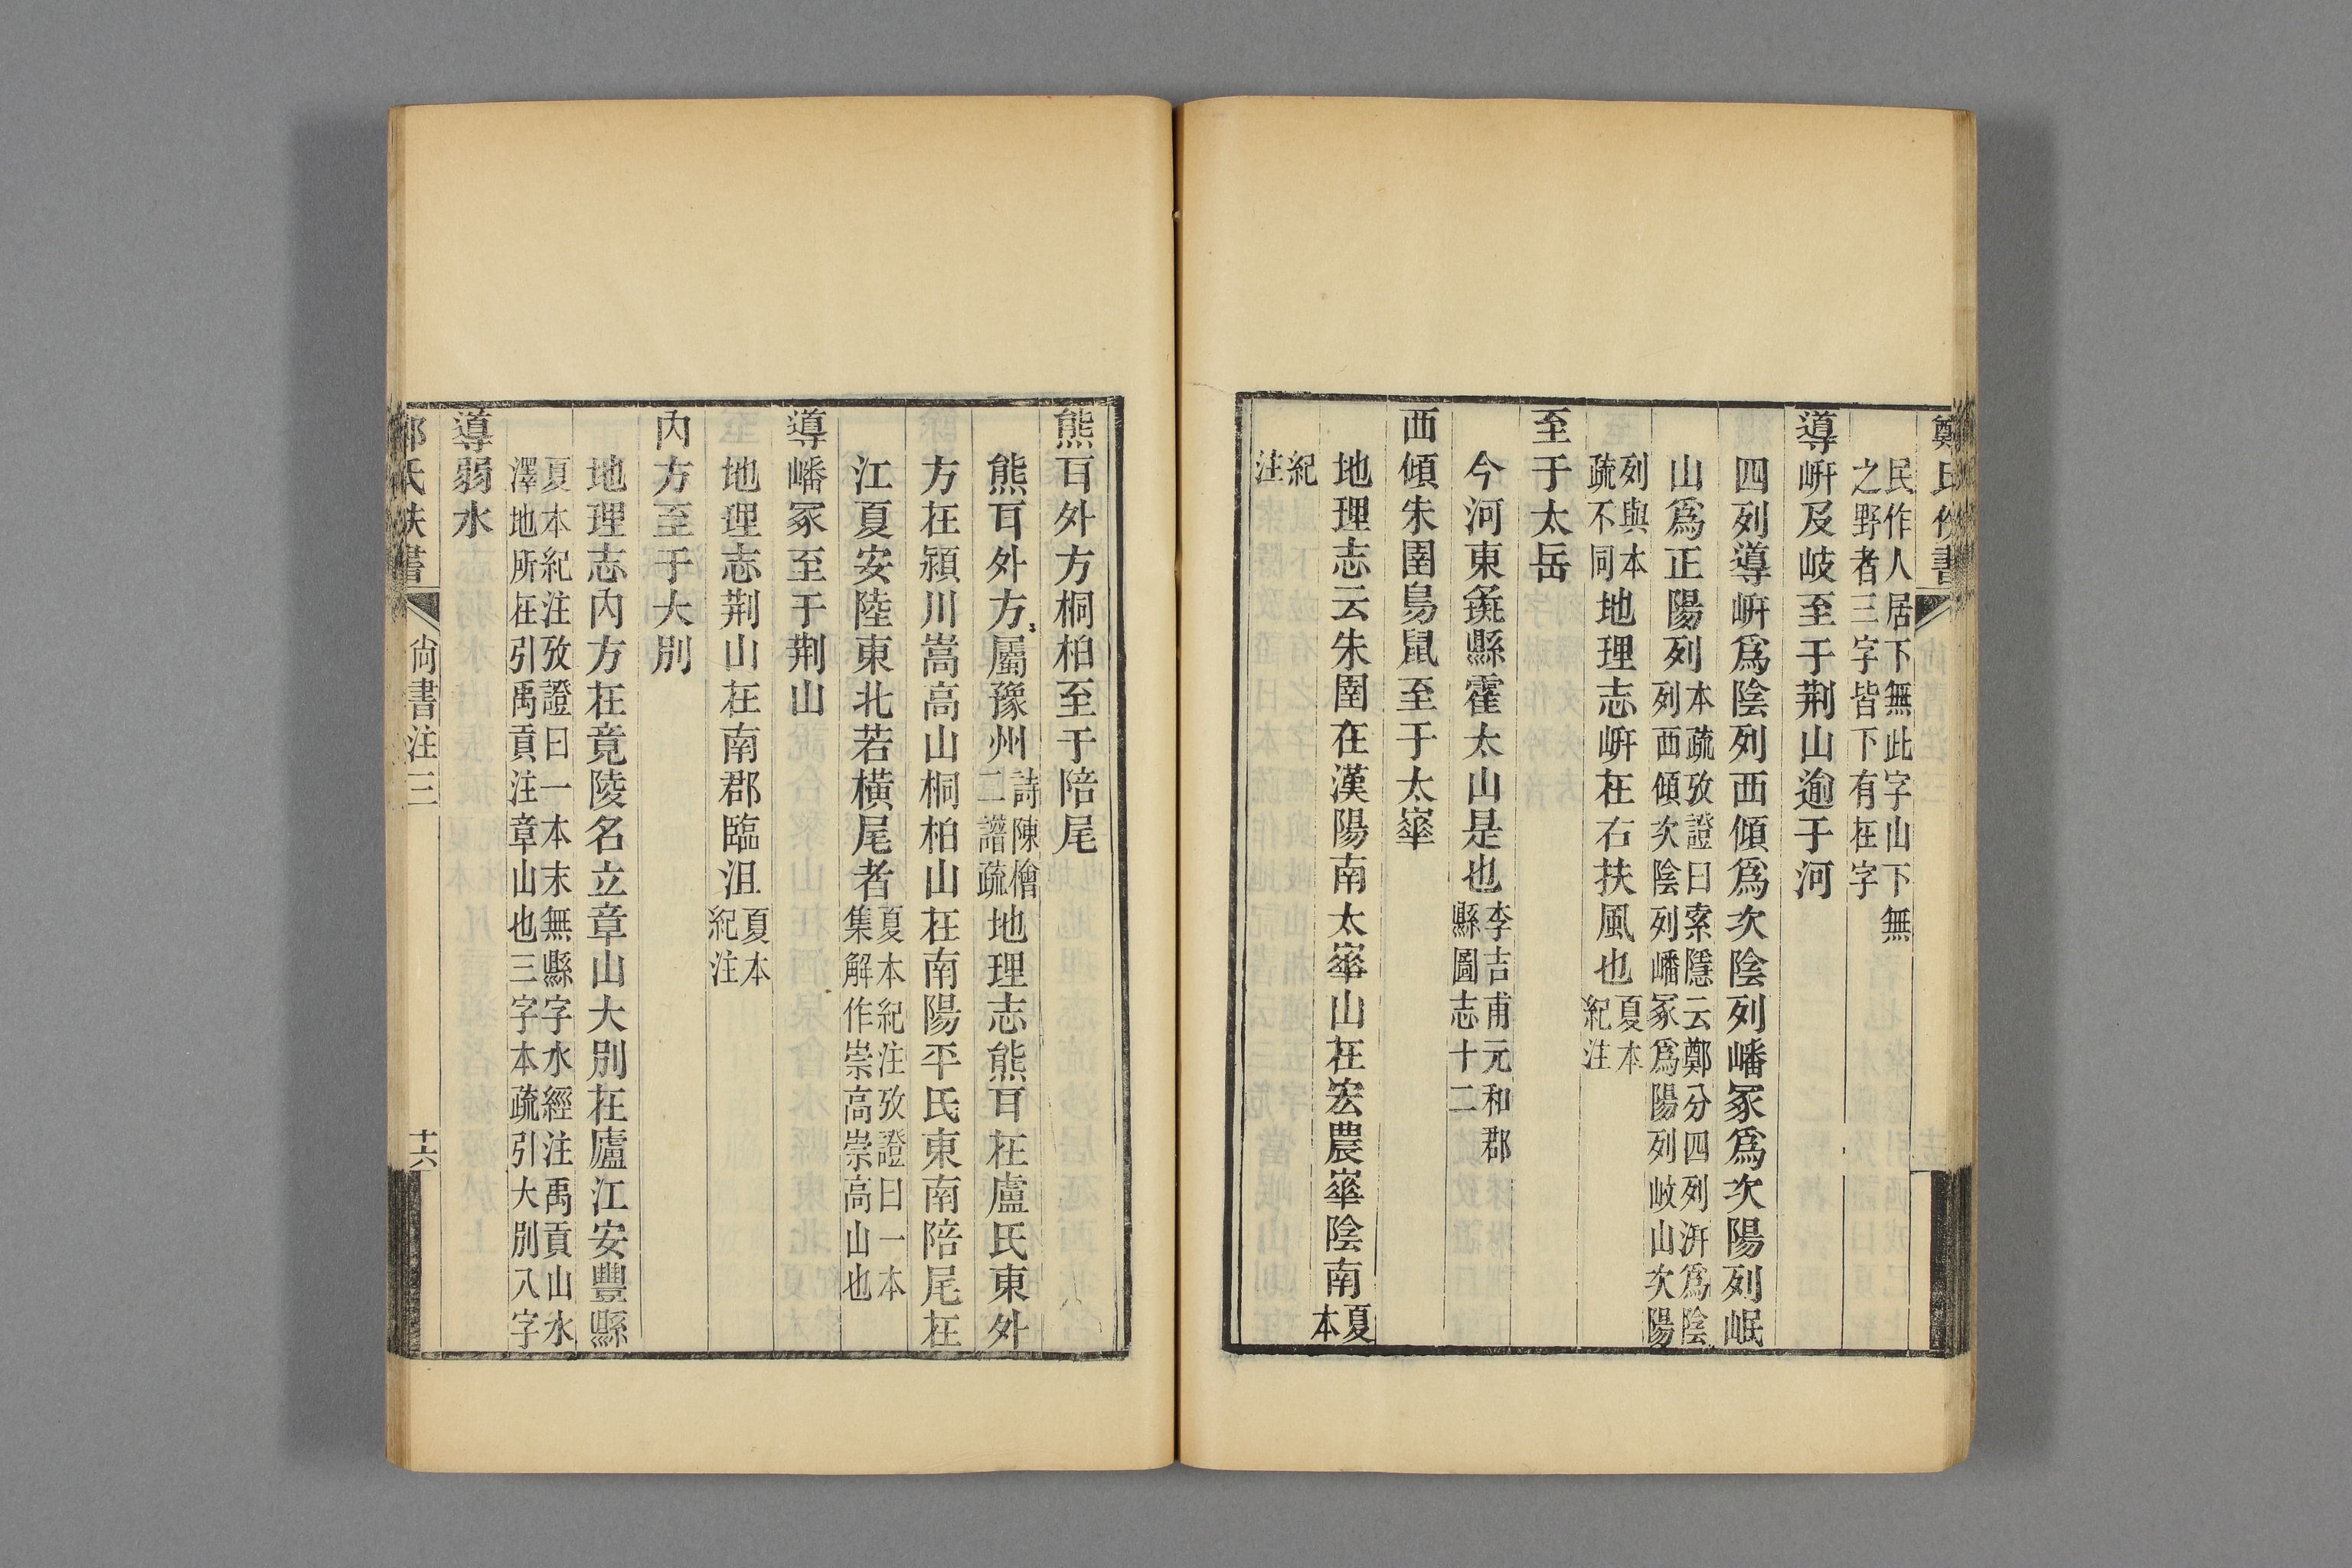 鄭氏佚書
民作人居下無此字山下無
之野者三字皆下有在字
導岍及岐至于荆山逾于河
四列導岍爲陰列西傾爲次陰列嶓冢爲次陽列岷
山爲正陽列
本疏攷證曰索隱云鄭分四列汧爲陰
列西傾次陰列嶓冢爲陽列岐山次陽
列與本
疏不同
地理志岍在右扶風也
夏本
紀注
至于太岳
今河東彘縣霍太山是也
李吉甫元和郡
縣圖志十二
西傾朱圉鳥鼠至于太崋
地理志云朱圉在漢陽南太崋山在宏農崋陰南
夏
本
紀
注
熊耳外方桐柏至于陪尾
熊耳外方屬豫州
詩陳檜
二譜疏
地理志熊耳在盧氏東外
方在潁川嵩高山桐柏山在南陽平氏東南陪尾在
江夏安陸東北若橫尾者
夏本紀注攷證曰一本
集解作崇高崇高山也
導嶓冢至于荆山
地理志荆山在南郡臨沮
夏本
紀注
内方至于大别
地理志内方在竟陵名立章山大别在廬江安豐縣
夏本紀注攷證曰一本末無縣字水經注禹貢山水
澤地所在引禹貢注章山也三字本疏引大别八字
導弱水
氏佚書
尚書注三
十六